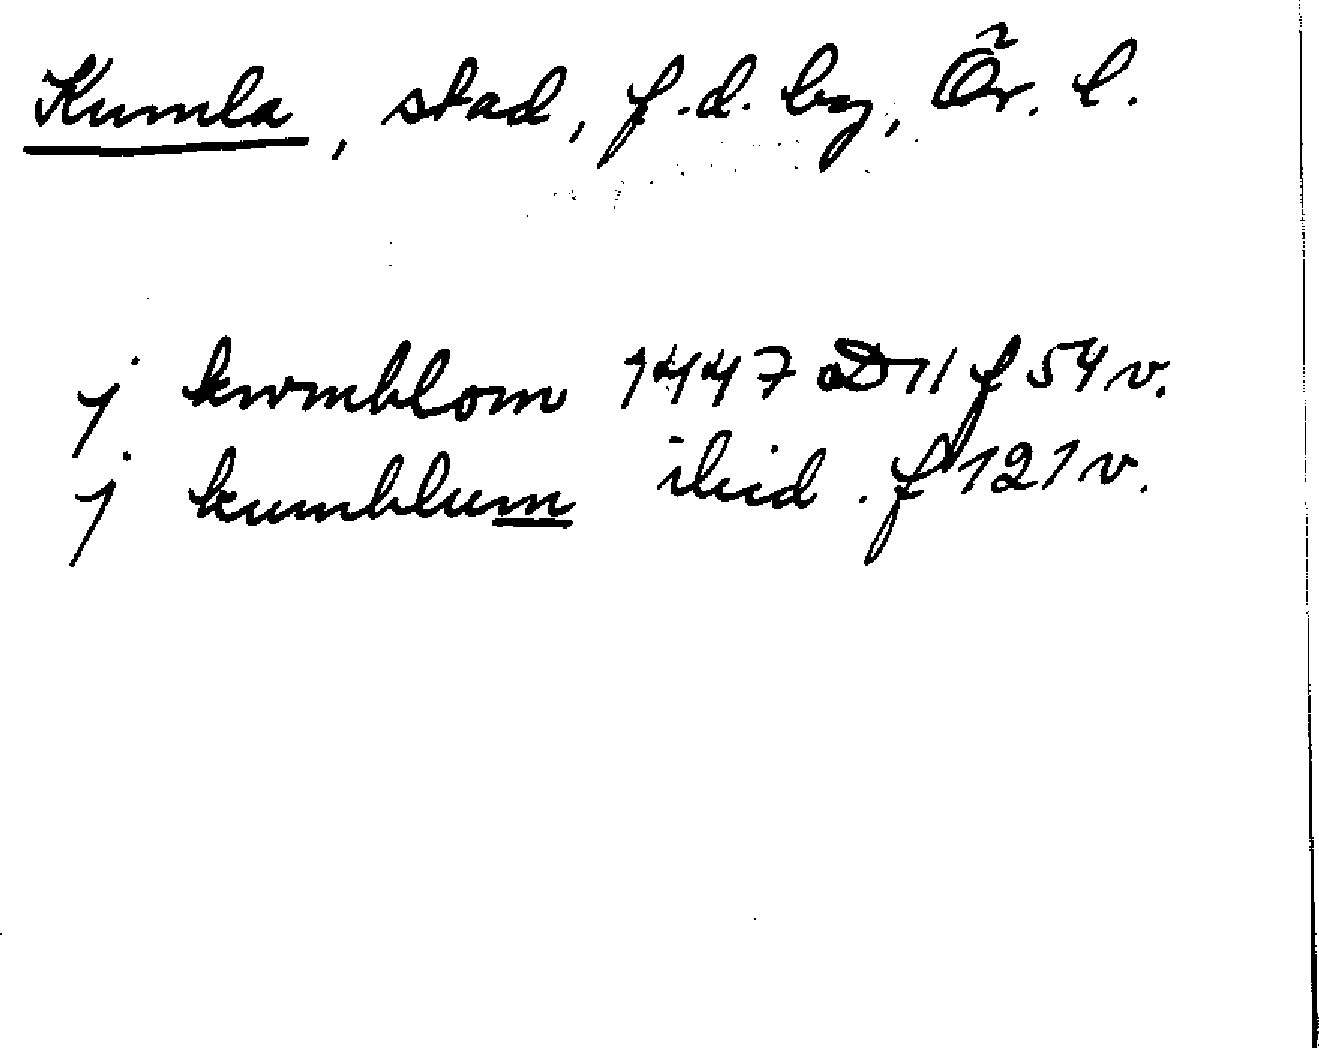 Kumla, stad, f.d. by, Ör. l.
j kwmblom 1447 D 11 f 54 v.
j kumblum ibid. f 121 v.